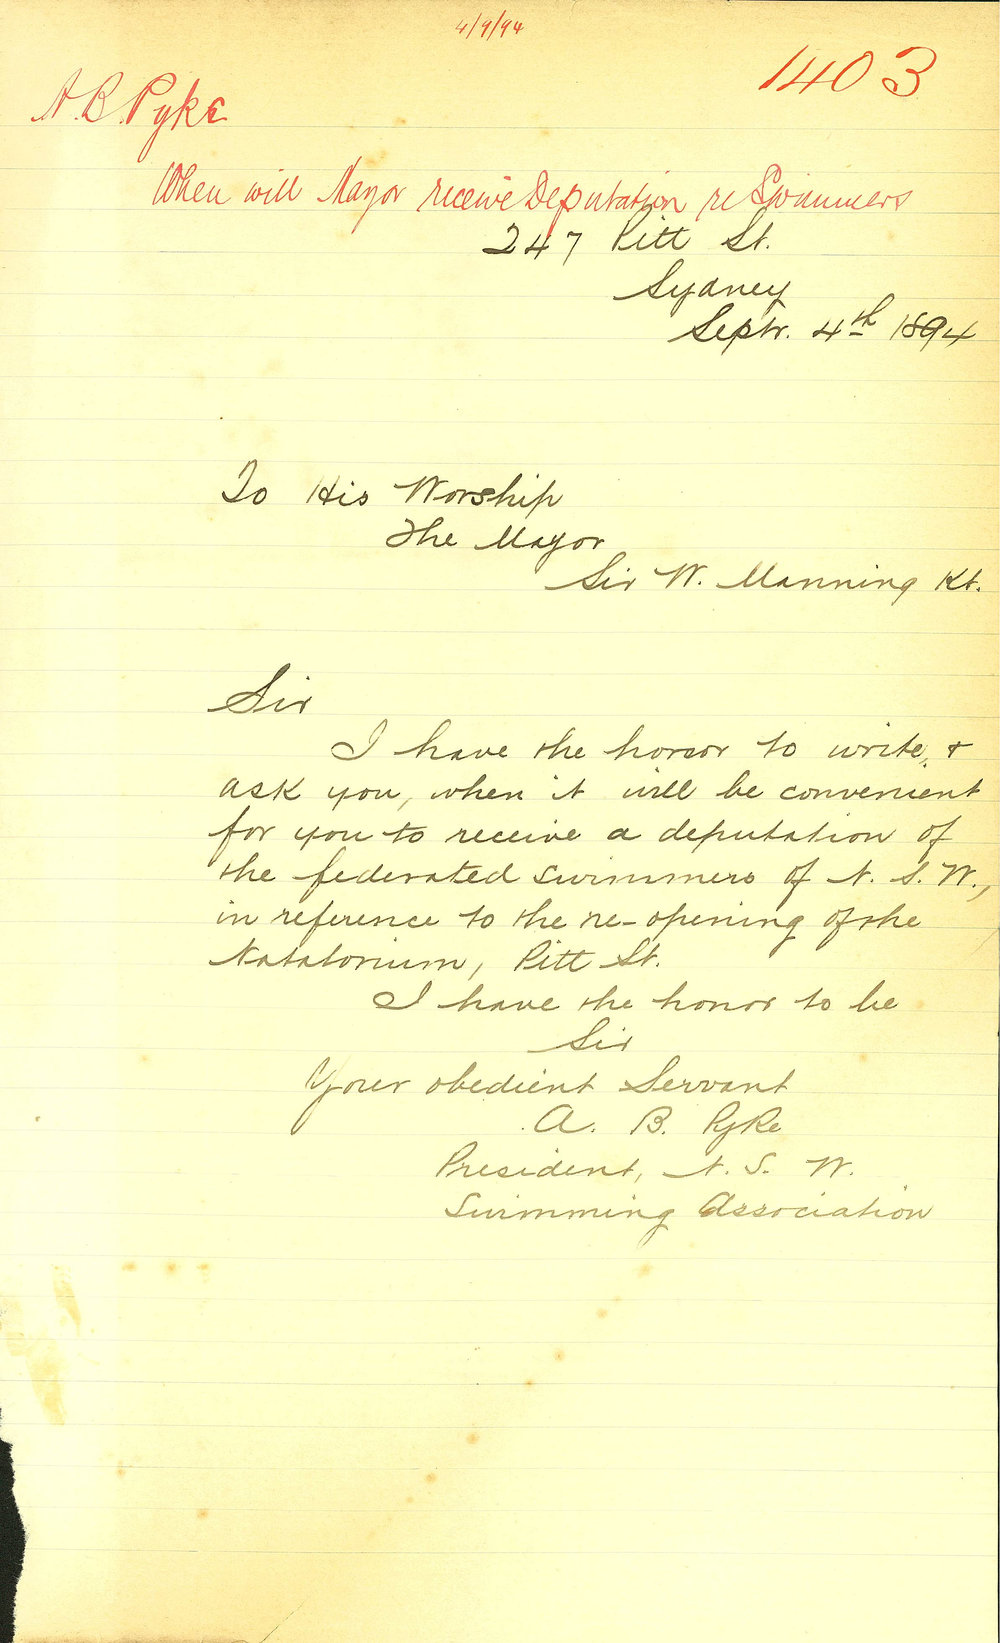 4/9/94
1403
A.B. Pyke
When will Mayor receive Deputation re Swimmers
247 Pitt St.
Sydney
Septr. 4th 1894
To His Worship
The Mayor
Sir W. Manning Kt.
Sir
I have the honor to write, &
ask you, when it will be convenient
for you to receive a deputation of
the federated swimmers of N. S. W.,
in reference to the re-opening of the
Natatorium, Pitt St.
I have the honor to be
Sir
Your obedient Servant
A. B. Pyke
President, N. S. W.
Swimming Association